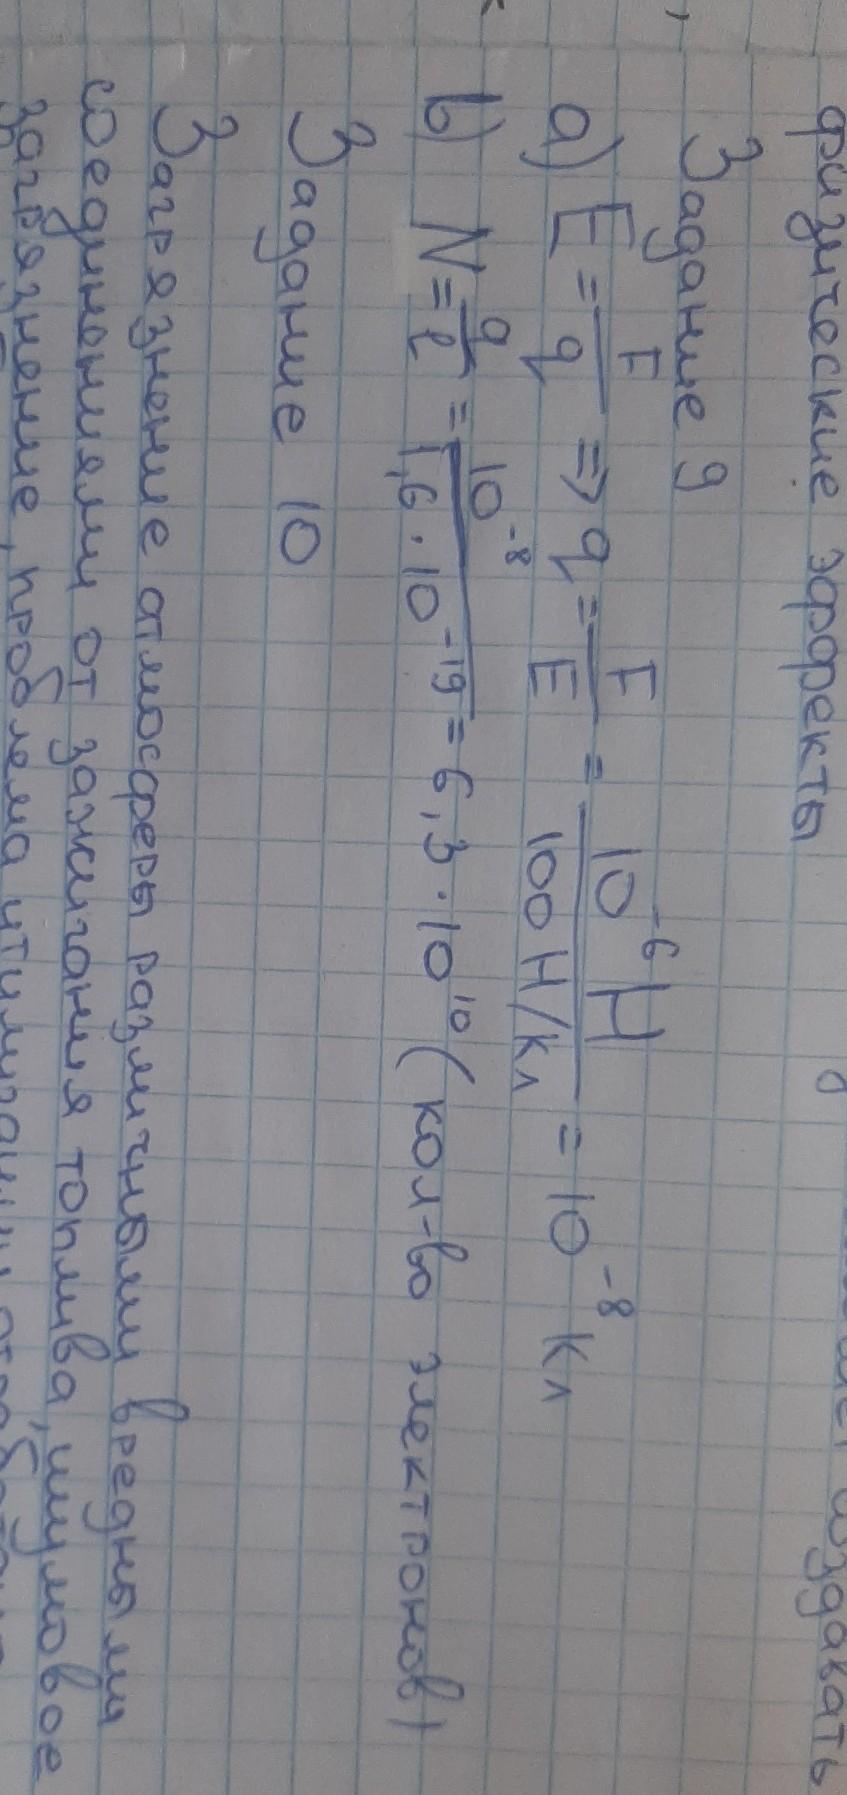 физические эффекты издавать
Задание 9
a) E = F/q => q = F/E = 10⁻⁶ Н / 100 Н/Кл = 10⁻⁸ Кл
b) N = q/e = 10⁻⁸ / 1,6 · 10⁻¹⁹ = 6,3 · 10¹⁰ (кол-во электронов)
Задание 10
Загрязнение атмосферы различными вредными
соединениями от зажигания топлива, шумовое
загрязнение, проблема утилизации